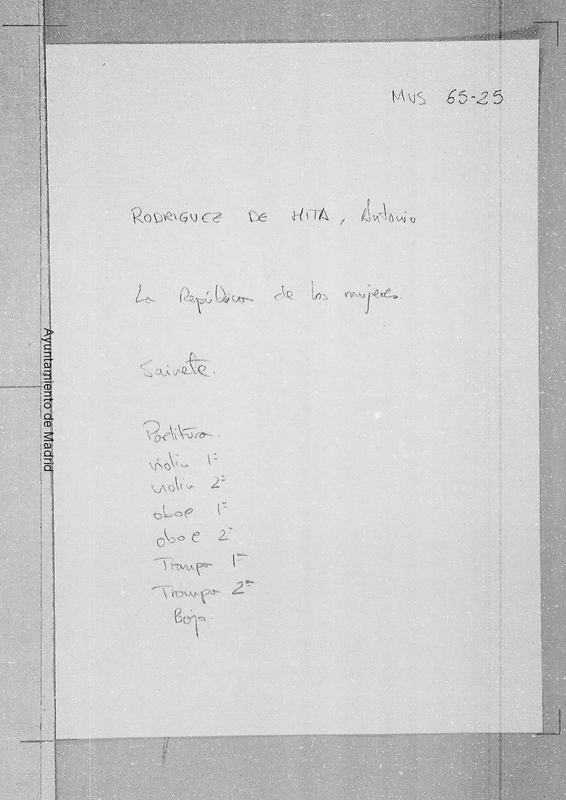 MUS 65-25
RODRIGUEZ DE HITA, Antonio
La República de las mujeres.
Sainete.
Partitura.
violin 1º
violin 2º
oboe 1º
oboe 2º
Trompa 1ª
Trompa 2ª
Bajo.
Ayuntamiento de Madrid